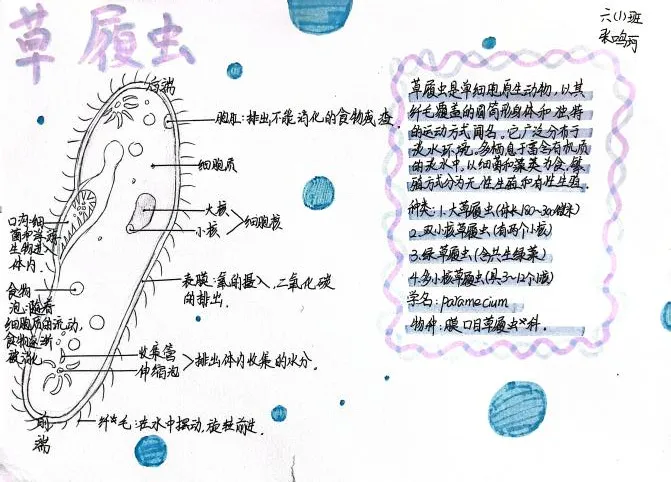 草履虫
六(1)班
后端
胞肛:排出不能消化的食物残渣.
细胞质
大核
小核
细胞核
口沟:细
菌和
生物进入
体内.
表膜:氧的摄入,二氧化碳
的排出.
食物
泡:随着
细胞质的流动,
食物逐渐
被消化
收集管
伸缩泡
排出体内收集的水分.
前
端
纤毛:在水中摆动,旋转前进.
草履虫是单细胞原生动物,以其
纤毛覆盖的圆筒形身体和独特
的运动方式闻名。它广泛分布于
淡水环境,多栖息于富含有机质
的淡水中。以细菌和藻类为食,繁
殖方式分为无性生殖和有性生殖。
种类:1.大草履虫(体长180~300微米)
2.双小核草履虫(有两个小核)
3.绿草履虫(含共生绿藻)
4.多小核草履虫(具3~12个小核)
学名:paramecium
物种:膜口目草履虫科.